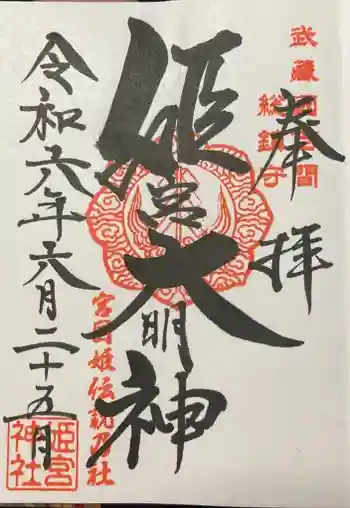 奉拝
武藏国
総鎮守
姫宮大明神
宮目姫伝説乃社
令和六年六月二十五日
姫宮
神社